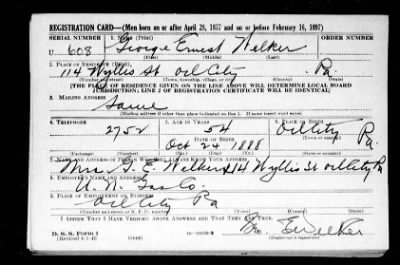 REGISTRATION CARD—(Men born on or after April 28, 1877 and on or before February 16, 1897)
SERIAL NUMBER 1. NAME (Print) ORDER NUMBER
U 608 George Ernest Welker
(First) (Middle) (Last)
2. PLACE OF RESIDENCE (Print)
114 Wyllis St Oil City Pa.
(Number and street) (Town, township, village, or city) (County) (State)
[THE PLACE OF RESIDENCE GIVEN ON THE LINE ABOVE WILL DETERMINE LOCAL BOARD
JURISDICTION; LINE 2 OF REGISTRATION CERTIFICATE WILL BE IDENTICAL]
3. MAILING ADDRESS
Same
[Mailing address if other than place indicated on line 2. If same insert word same]
4. TELEPHONE 5. AGE IN YEARS 6. PLACE OF BIRTH
2752 54 Oil City
DATE OF BIRTH
Oct 24 1888 Pa.
(Exchange) (Number) (Mo.) (Day) (Yr.) (State or country)
7. NAME AND ADDRESS OF PERSON WHO WILL ALWAYS KNOW YOUR ADDRESS
Mrs. G. E. Welker 114 Wyllis St Oil City Pa
8. EMPLOYER'S NAME AND ADDRESS
U. N. Gas Co.
9. PLACE OF EMPLOYMENT OR BUSINESS
Oil City Pa
(Number and street or R. F. D. number) (Town) (County) (State)
I AFFIRM THAT I HAVE VERIFIED ABOVE ANSWERS AND THAT THEY ARE TRUE.
D. S. S. Form 1
(Revised 4-1-42) Geo. E. Welker